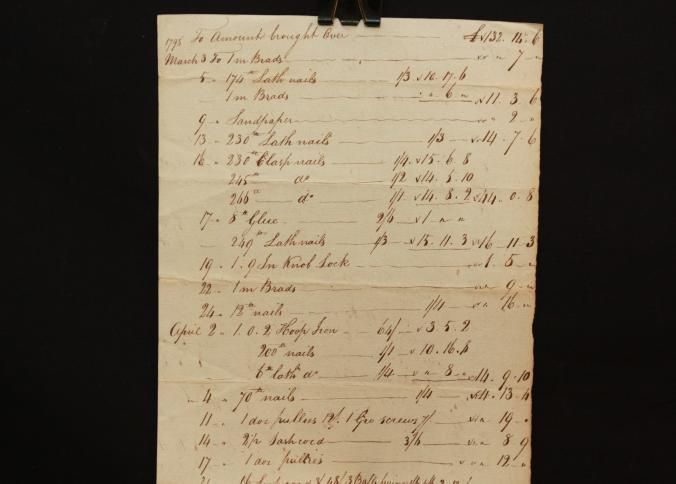 1795 To Amount brought Over £132. 14. 6
March 3 To 1 m Brads " 7 "
5 " 174 lb Lath nails 1/3 10. 17. 6
1 m Brads " 6 " 11. 3. 6
9 " Sandpaper " 2 "
13 " 230 lb Lath nails 1/3 14. 7. 6
16 " 230 lb Clasp nails 1/4 15. 6. 8
245 lb do 1/2 14. 5. 10
266 lb do 1/1 14. 8. 2 44. 0. 8
17 " 8 lb Glue 2/6 1 " "
249 lb Lath nails 1/3 15. 11. 3 16. 11. 3
19 " 1. 9 In Knob Lock 1. 5 "
22 " 1 m Brads " 9 "
24 " 12 lb nails 1/4 " 16 "
April 2 " 1. 0. 2, Hoop Iron 64/ 3. 5. 2
200 lb nails 1/1 10. 16. 8
6 lb lath do 1/4 " 8 " 14. 9. 10
4 " 70 lb nails 1/4 4. 13. 4
11 " 1 doz pullies 12/. 1 Gro screws 7/ " 19 "
14 " Sash cord 3/6 " 8 9
17 " 1 doz pullies " 12 "